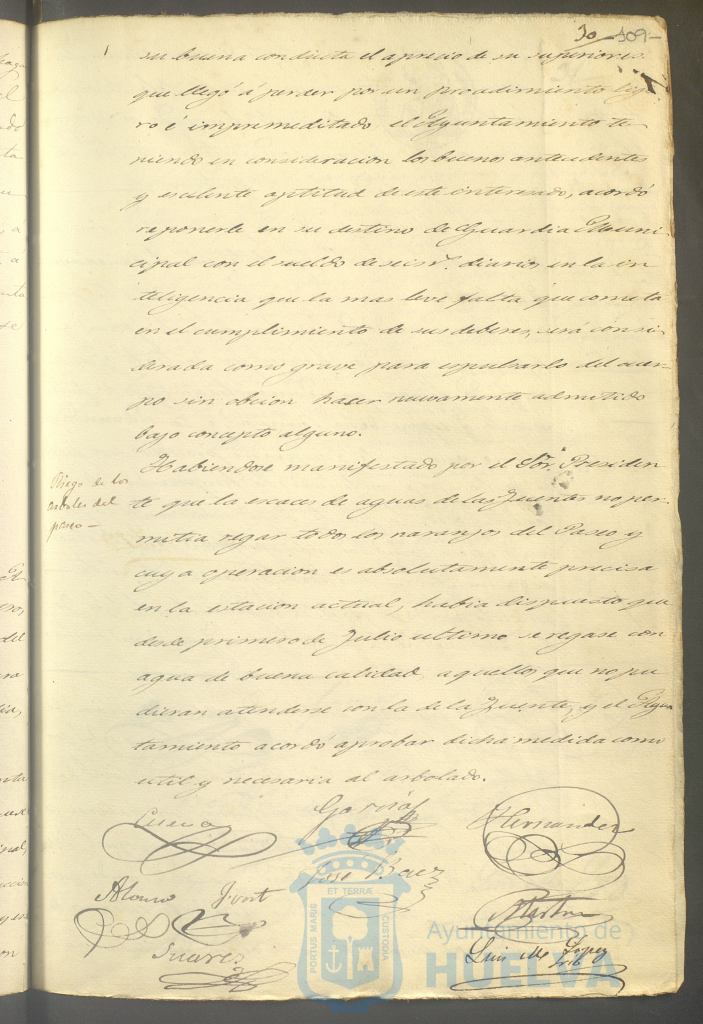 30 - 109 -
su buena conducta el aprecio de su superiores
que llegó á perder por un procedimiento lije
ro é impremeditado el Ayuntamiento te
niendo en consideracion los buenos antecedentes
y esculente aptitud de este interesado, acordó
reponerle en su destino de Guardia Muni
cipal con el sueldo de seis rs. diarios en la in
teligencia que la mas leve falta que cometa
en el cumplimiento de sus deberes, será consi
derada como grave para espulsarlo del cuer-
po sin obcion haser nuevamente admitido
bajo concepto alguno.
Riego de los
arboles del
paseo -
Habiendose manifestado por el Sor. Presiden
te que la escaces de aguas de las Fuentes no per-
mitia regar todos los naranjos del Paseo y
cuya operacion es absolutamente precisa
en la estacion actual, habia dispuesto que
desde primero de Julio ultimo se regase con
agua de buena calidad aquellos que no pu
dieran atenderse con la de la Fuente, y el Ayun
tamiento acordó aprobar dicha medida como
util y necesaria al arbolado.
Garcia
Hernandez
José Baez
Alonso
Suarez
Luis Ma Lopez
Srio
PORTUS MARIS ET TERRÆ CUSTODIA
Ayuntamiento de
HUELVA